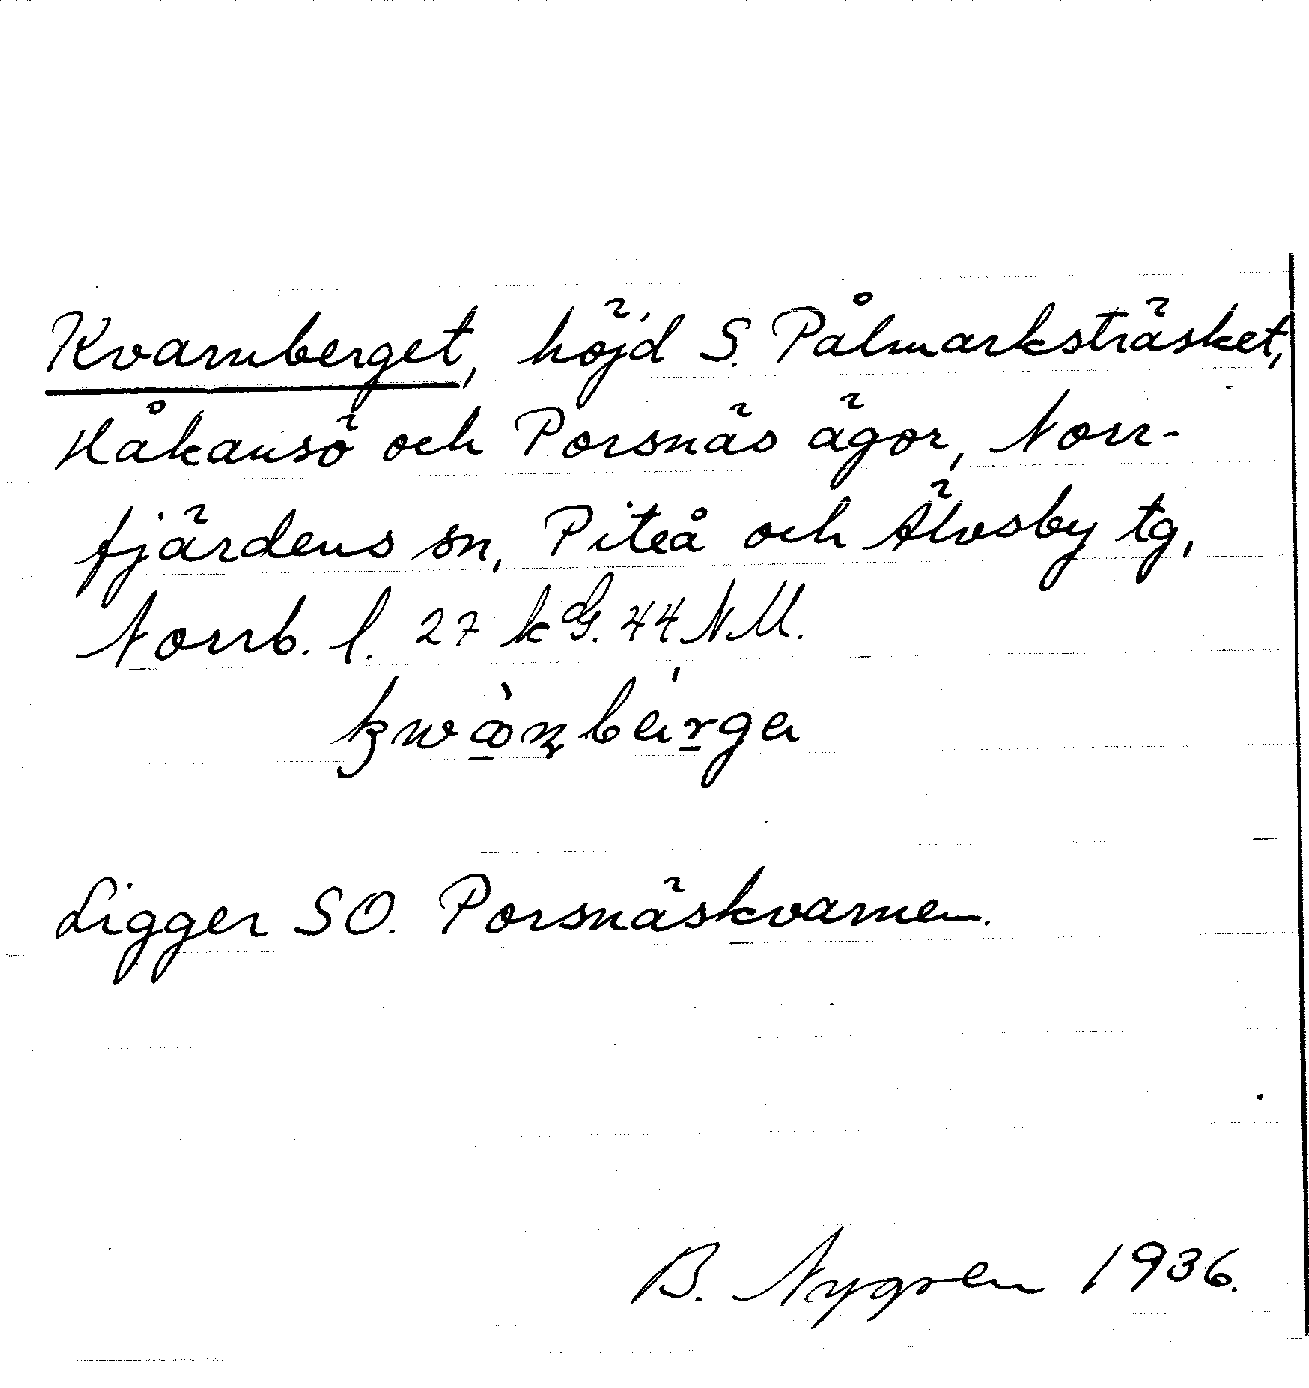 Kvarnberget, höjd S. Pålmarksträsket,
Håkansö och Porsnäs ägor, Norr-
fjärdens sn, Piteå och Älvsby tg,
Norrb. l. 27 k G. 44 N M.
Ligger SO. Porsnäskvarnen.
B. Nygren 1936.